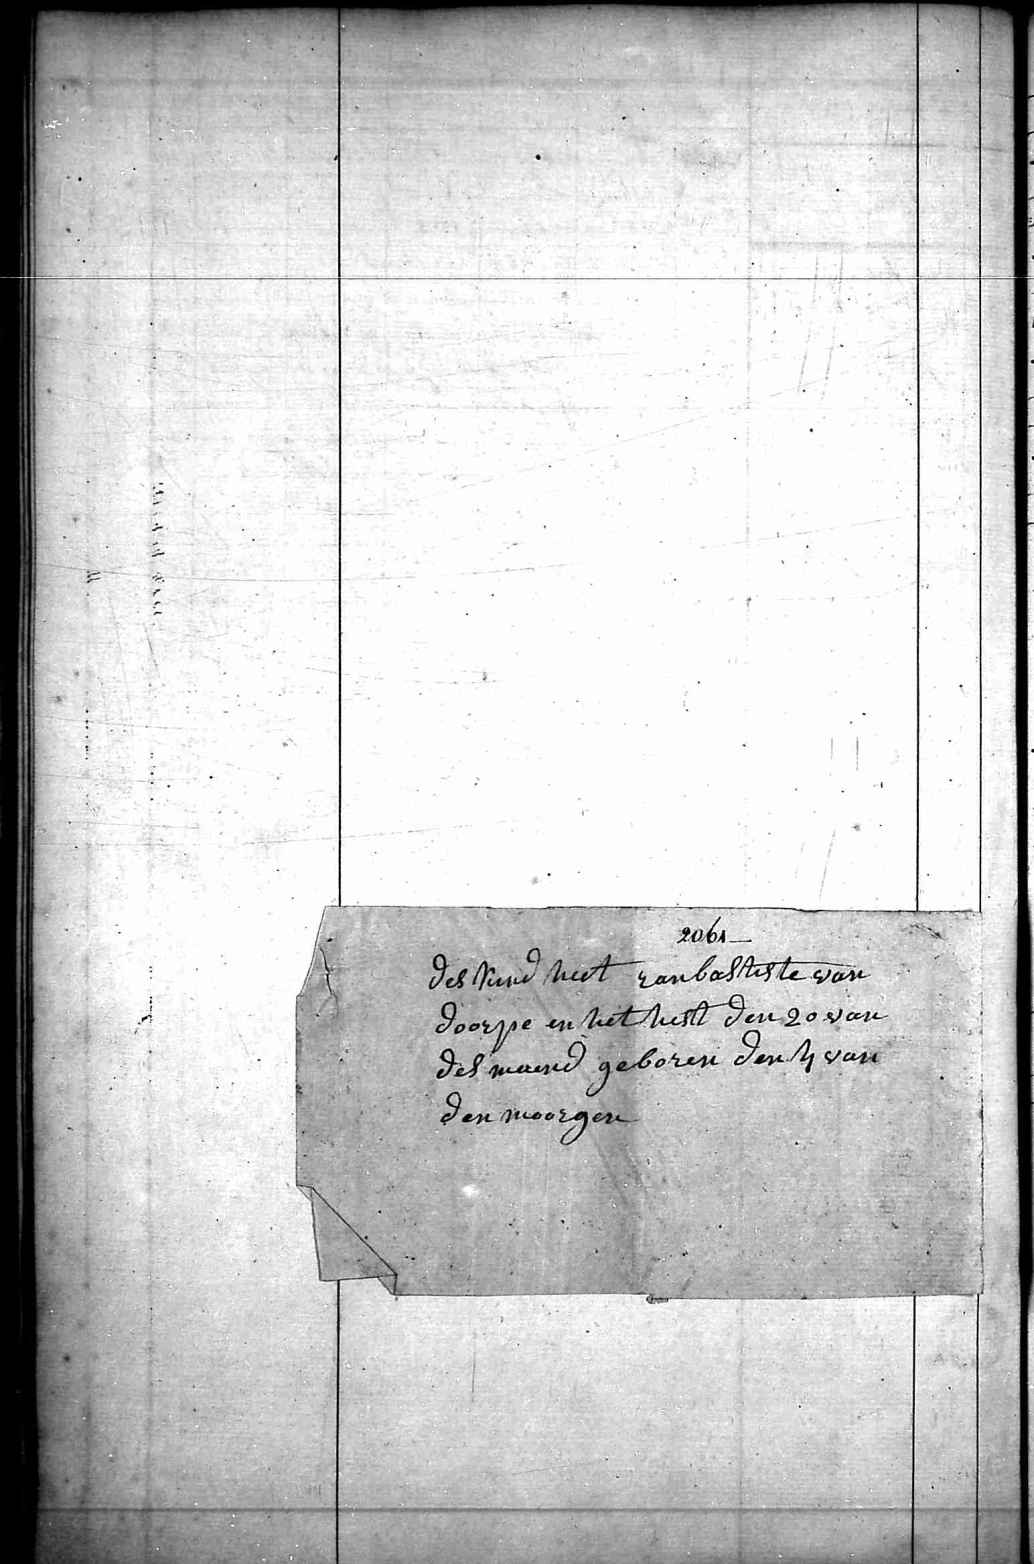 2061
des kind heet zanbatiste van
doorpe en het hest den 20 van
des maend geboren den 4 van
den moorgen